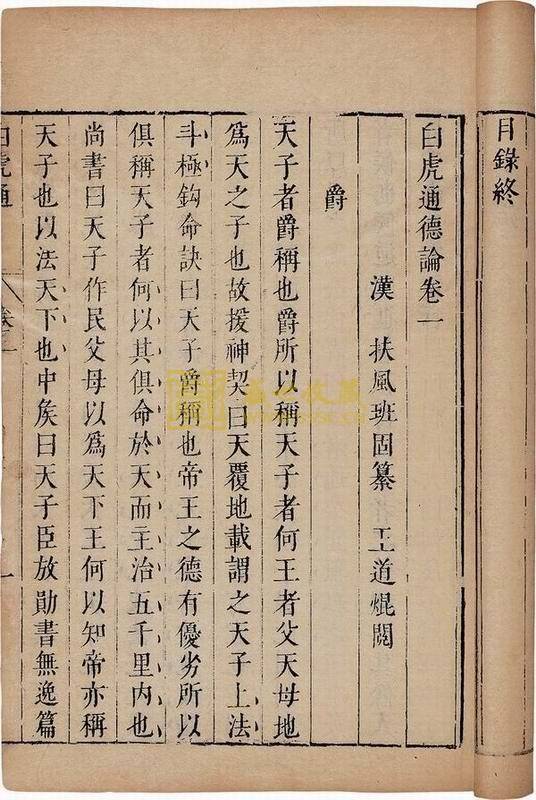 目錄終
白虎通德論卷一
漢 扶風班固纂 王道焜閱
爵
天子者爵稱也爵所以稱天子者何王者父天母地
爲天之子也故援神契曰天覆地載謂之天子上法
斗極鈎命訣曰天子爵稱也帝王之德有優劣所以
俱稱天子者何以其俱命於天而主治五千里內也
尚書曰天子作民父母以爲天下王何以知帝亦稱
天子也以法天下也中矦曰天子臣放勛書無逸篇
白虎通 卷一 一